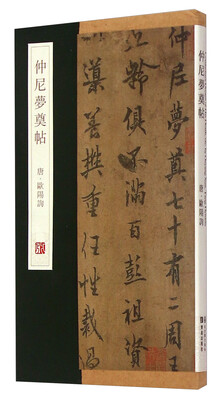 仲尼夢奠帖
唐·歐陽詢
仲尼夢奠七十有二周王
九齡俱不滿百彭祖資
導善攝重任性裁過
仲尼夢奠帖
唐·歐陽詢